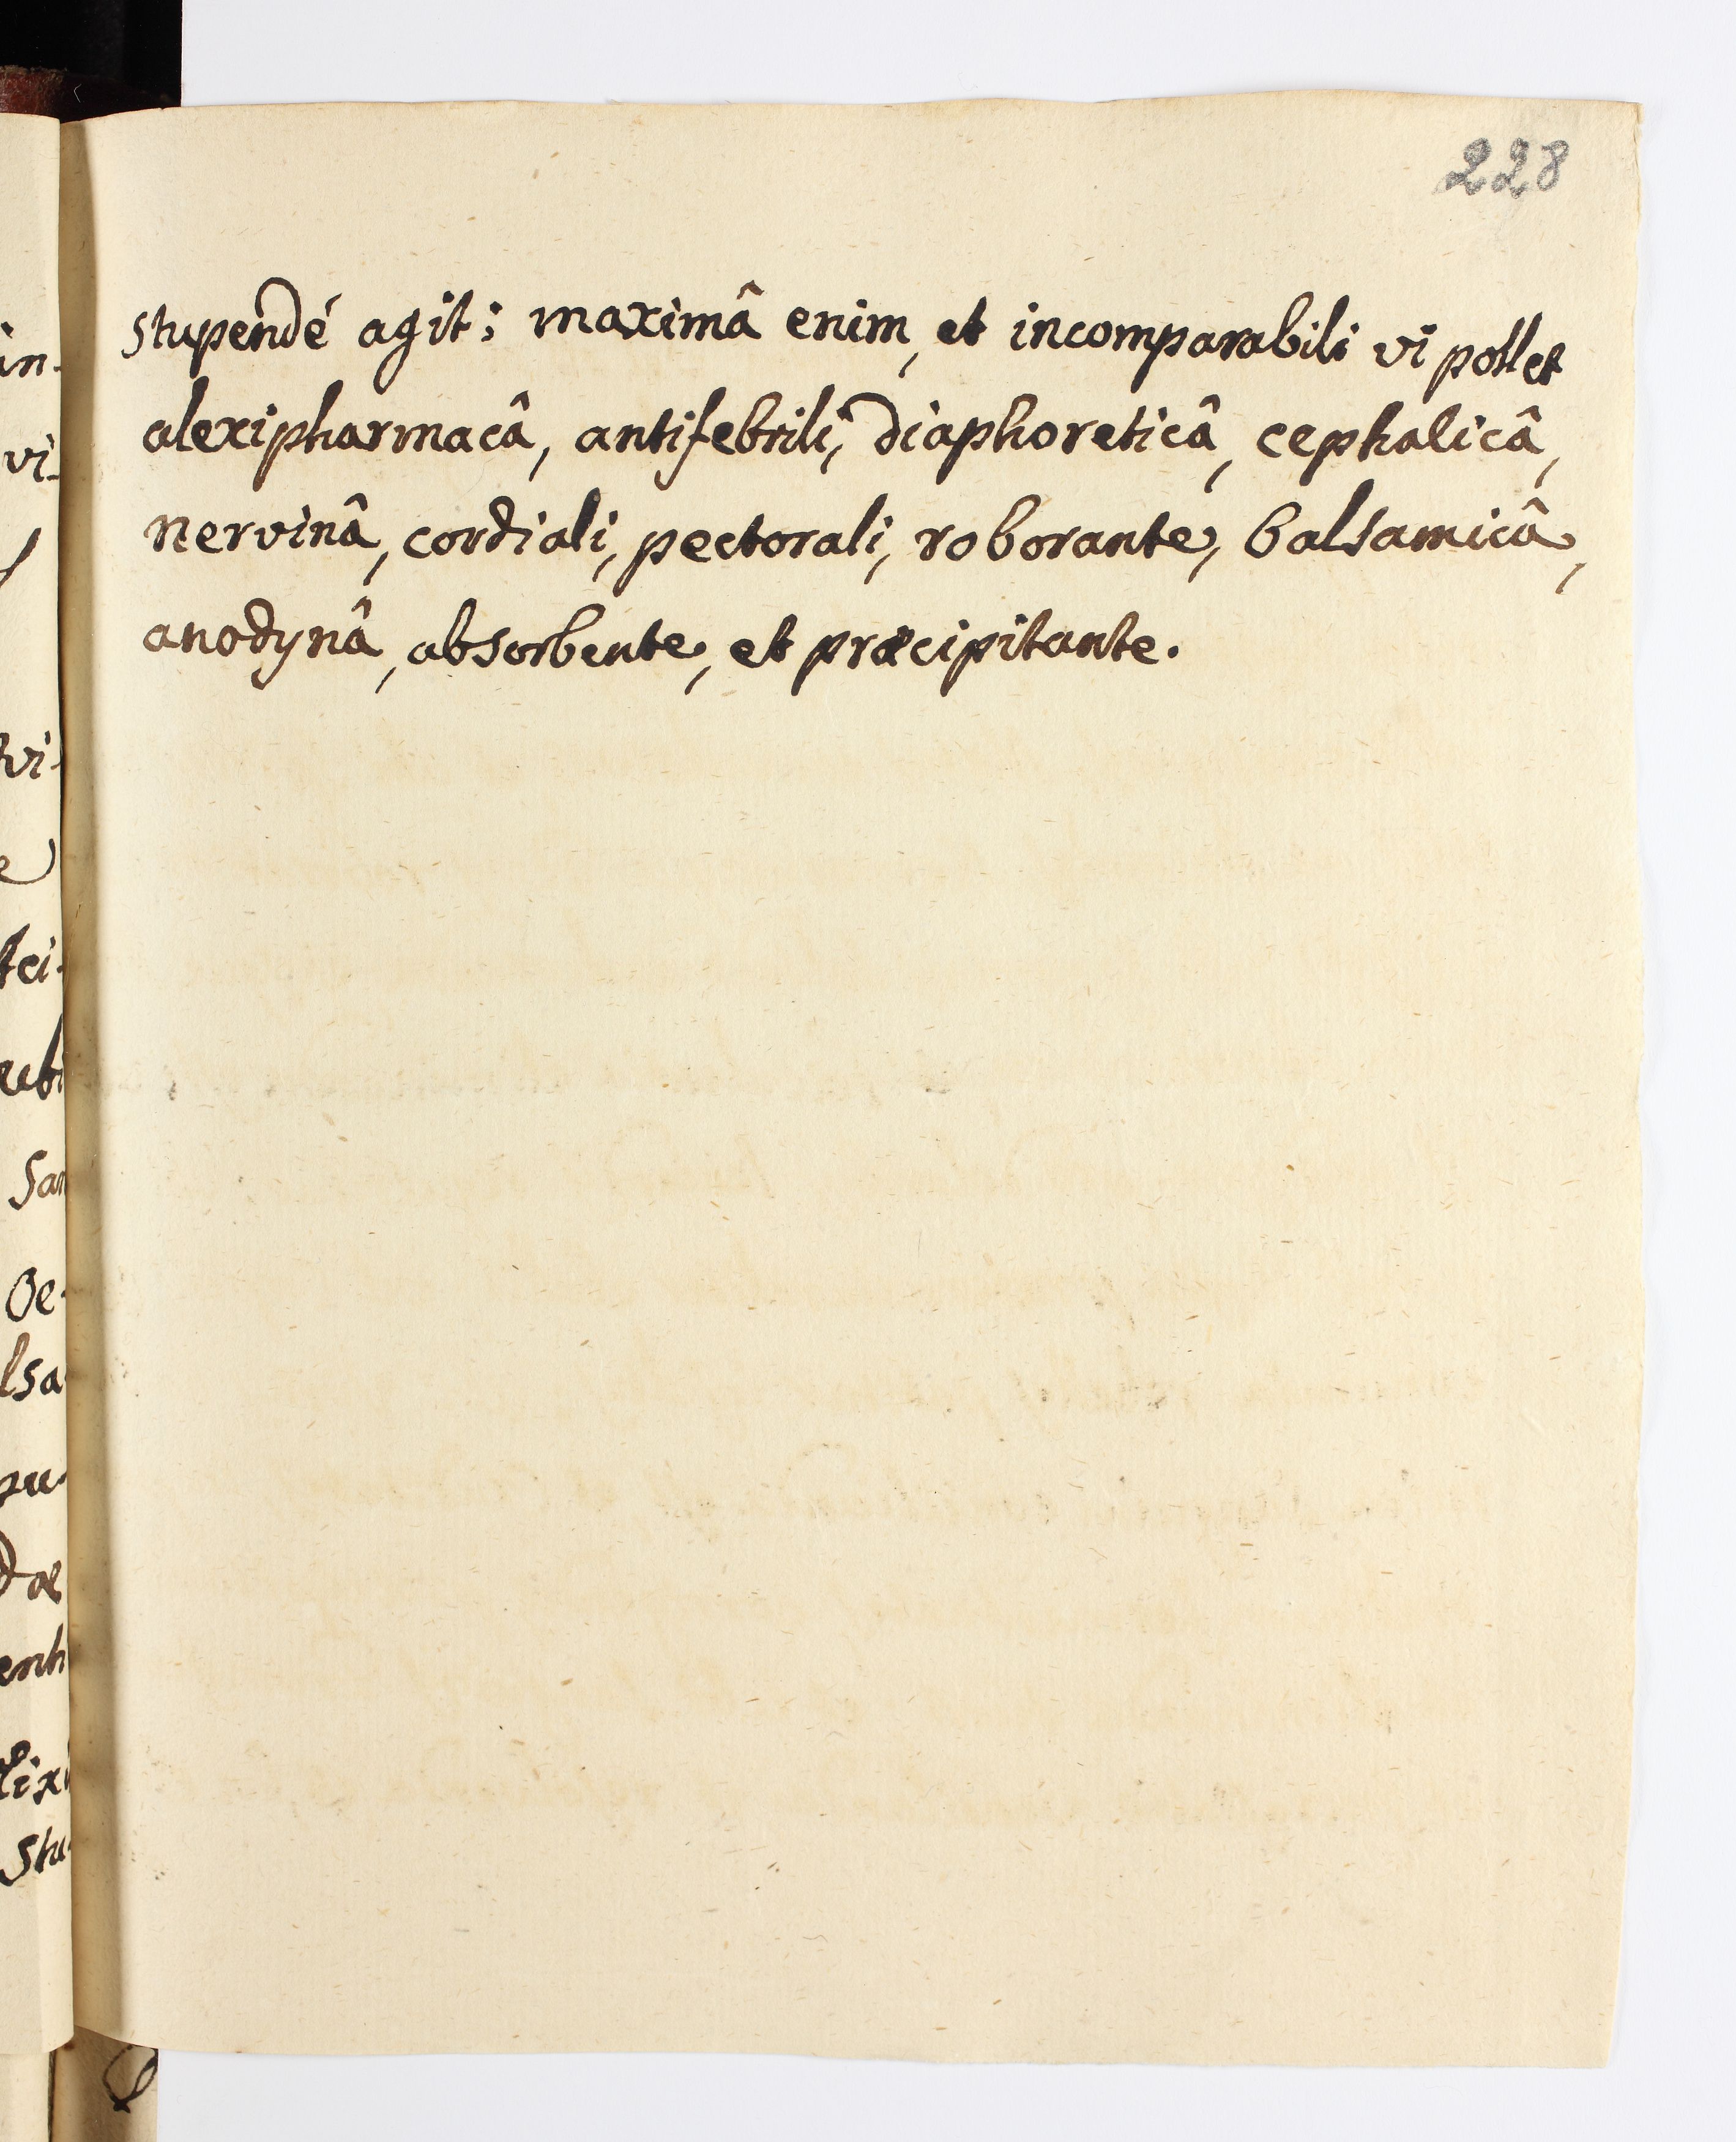 228
stupendé agit; maximâ enim, et incomparabili vi pollet
alexipharmacâ, antifebrili, diaphoreticâ, cephalicâ,
nervinâ, cordiali, pectorali, roborante, balsamicâ,
anodynâ, absorbente, et præcipitante.